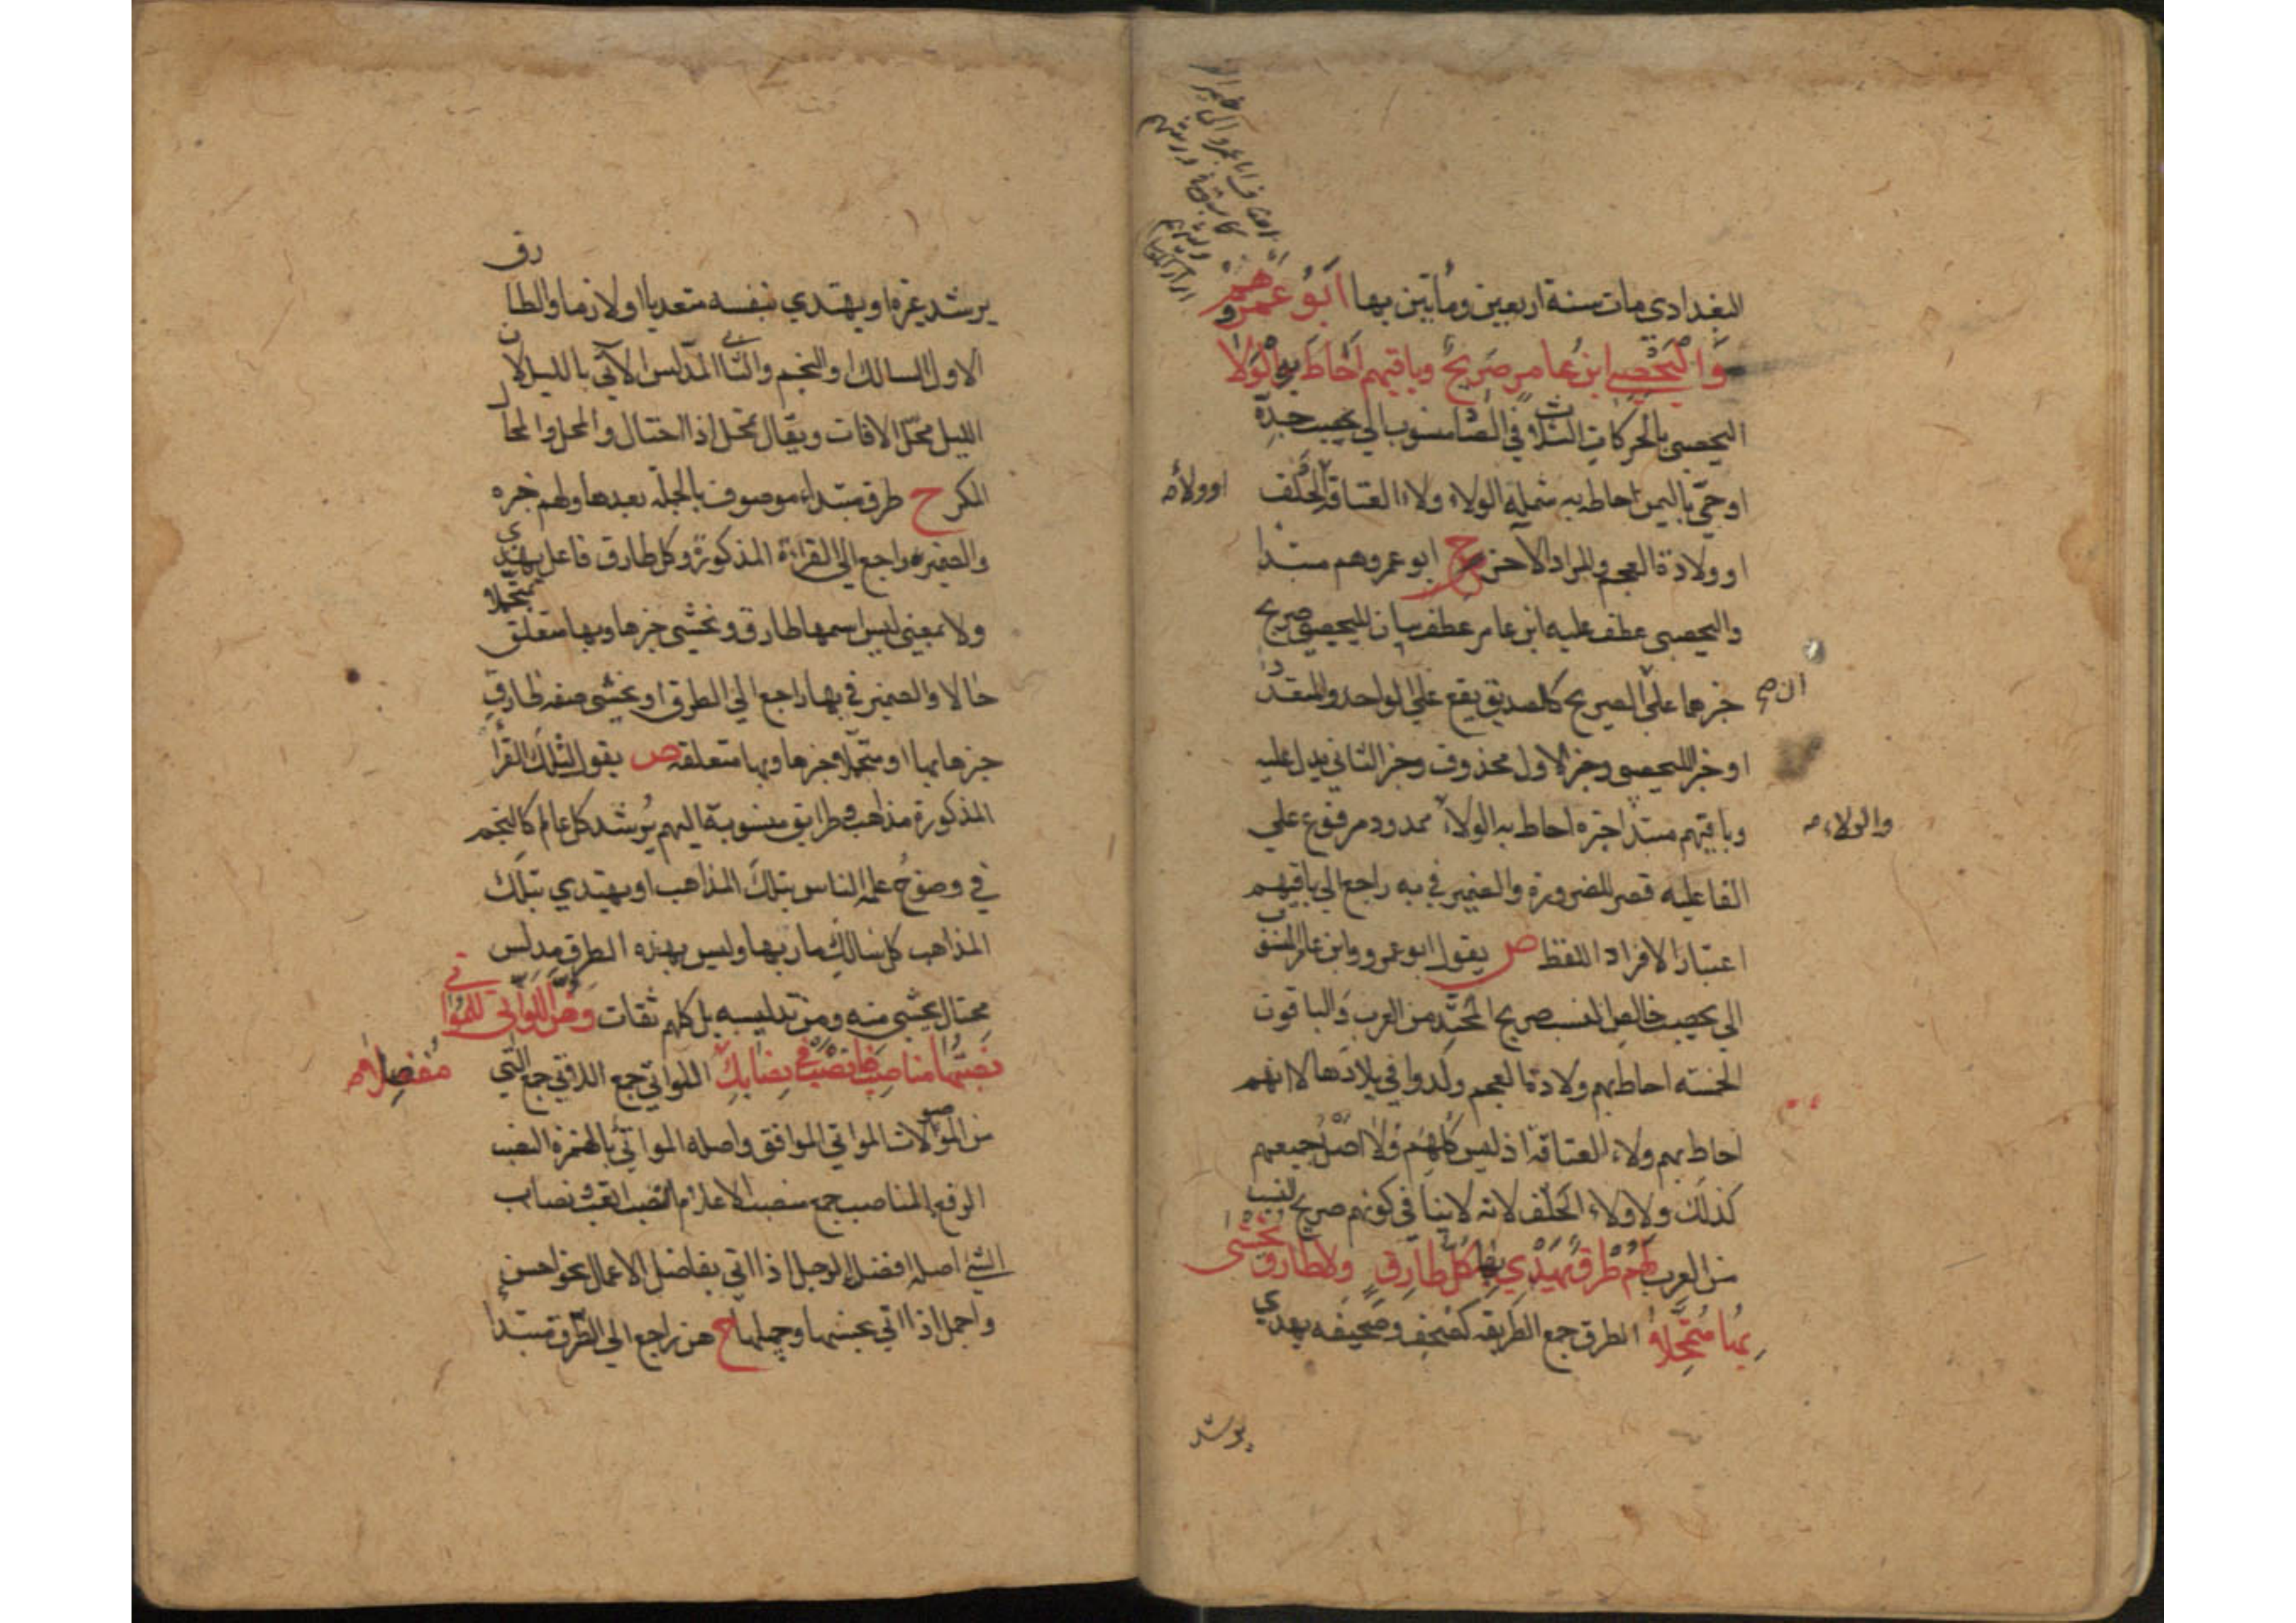 البغدادي مات سنة اربعين ومأتين بها ابو عمرهم و
واليحصبي ابن عامر صريح وباقيهم احاط به الولا
اليحصبي بالحركات الثلاث في الصاد منسوب الي يحصب جدّه
او حيّ باليمن احاط به شمله الولاء ولاء العتاقة او الحلف
او ولاءه
او ولادة العجم والمراد الآخر ح ابو عمروهم مبتدا
واليحصبي عطف عليه ابن عامر عطف بيان لليحصبي صريح
خبرهما علي ان الصريح كالصديق يقع علي الواحد والمتعدد
او خبر اليحصبي وخبر الاول محذوف وخبر الثاني يدل عليه
وباقيهم مبتدا خبره احاط به الولاء ممدود مرفوع علي
والولاء
الفاعلية قصر للضرورة والضمير في به راجع الي باقيهم
اعتبارا لافراد اللفظ ص يقول ابو عمرو وابن عامر المنسوب
الي يحصب خالص النسب صريح المحتد من العرب والباقون
الخمسة احاط بهم ولادة العجم ولدوا في بلادها لا انهم
احاط بهم ولاء العتاقة اذ ليس كلهم ولا اصل جميعهم
كذلك ولا ولاء الحلف لانه لا ينافي كونهم صريح النسب
من العرب لهم طرق يهدي بها كل طارق ولا طارق يخشى
بها متمحلا الطرق جمع الطريقة كصحف وصحيفة يهدي
يرشد
يرشد غيره او يهتدي بنفسه متعديا او لازما والطارق
الاول السالك او النجم والثاني المدلس الآتي بالليل لان
الليل محل الافات ويقال تمحل اذا احتال والمحل والمحال
المكر ح طرق مبتداء موصوف بالجملة بعدها ولهم خبره
والضمير راجع الي القراءة المذكورة وكل طارق فاعل يهدي
ولا بمعني ليس اسمها طارق ويخشي خبرها وبها متعلق متمحلا
حالا والضمير في بها راجع الي الطرق او يخشي صفه طارق
خبرها بها او متمحلا خبرها وبها متعلقه ص يقول لتلك القرأ
المذكورة مذاهب وطرايق منسوبة اليهم يرشد كل عالم كالنجم
في وضوح علمه الناس بتلك المذاهب او يهتدي بتلك
المذاهب كل سالك مار بها وليس بهذه الطرق مدلس
محتال يخشي منه ومن تدليسه بل كلهم ثقات وهن اللواتي للمواتي
نصبتها مناصب فانصب في نصابك اللواتي جمع اللاتي جمع التي
مفضلا
من الموصولات المواتي الموافق واصله المواتي بالهمزة النصب
الرفع المناصب جمع منصب الاعلام النصب التعب نصاب
الشيء اصله افضل الرجل اذا اتي بفاضل الاعمال نحو احسن
واجمل اذا اتي بحسنها وجميلها ح هن راجع الي الطرق مبتدا